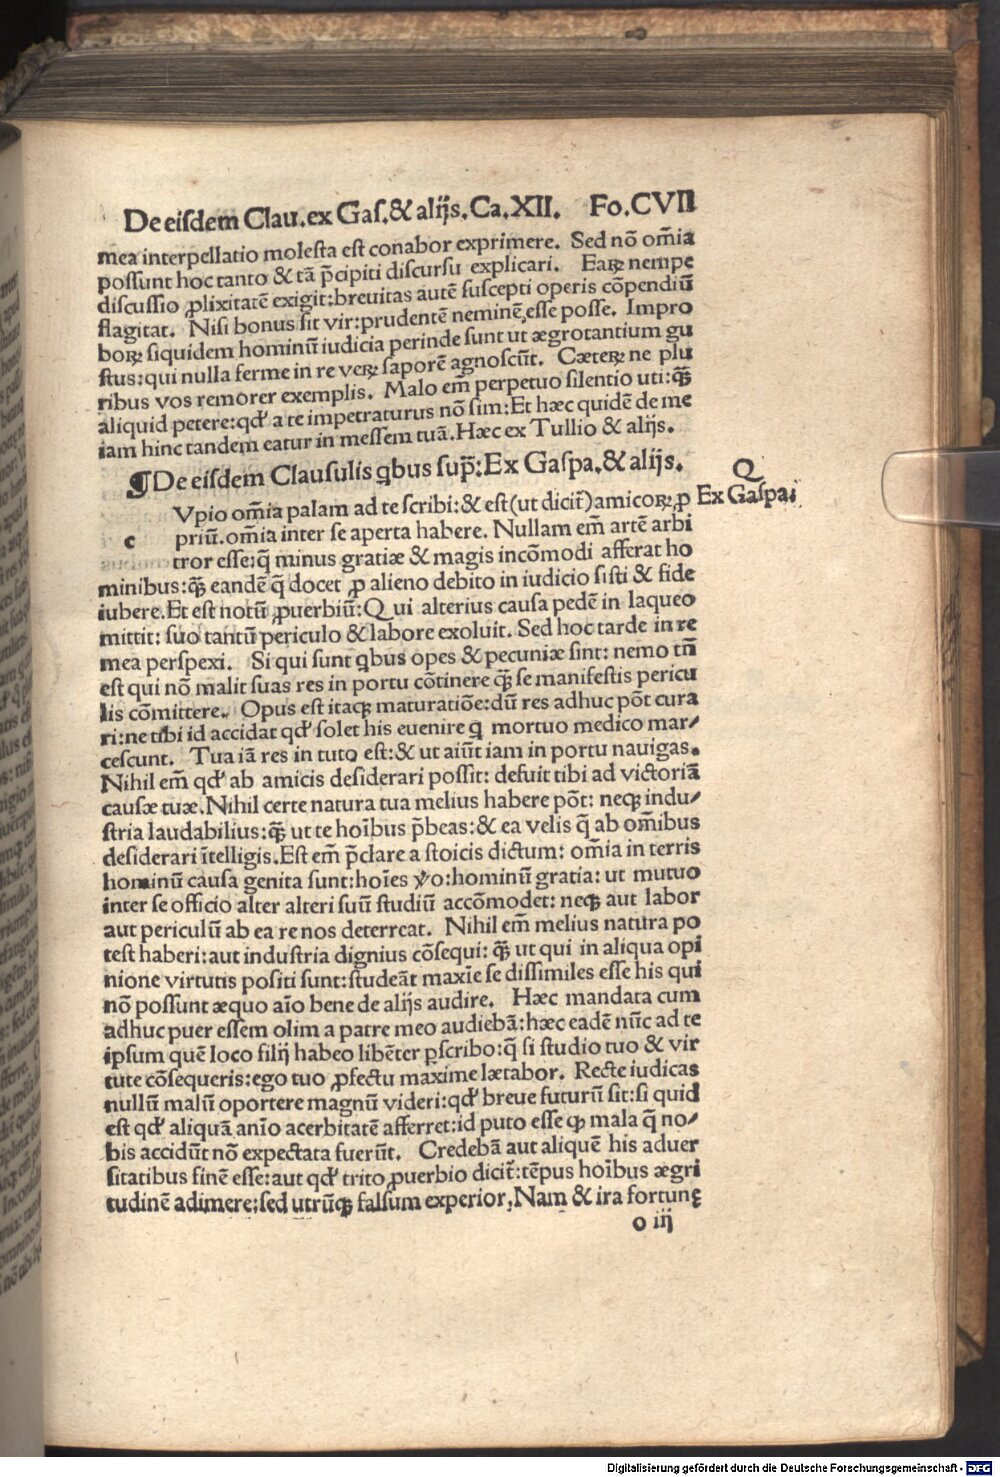 De eiſdem Clau. ex Gaſ. & alijs. Ca. XII. Fo. CVII
mea interpellatio moleſta eſt conabor exprimere. Sed nō om̄ia
poſſunt hoc tanto & tā p̄cipiti diſcurſu explicari. Eaꝝ nempe
diſcuſſio ꝓlixitatē exigit: breuitas autē ſuſcepti operis cōpendiū
flagitat. Niſi bonus ſit vir: prudentē neminē eſſe poſſe. Impro
boꝝ ſiquidem hominū iudicia perinde ſunt ut ægrotantium gu
ſtus: qui nulla ferme in re veꝝ ſaporē agnoſcūt. Cæteꝝ ne plu
ribus vos remorer exemplis. Malo em̄ perpetuo ſilentio uti: q̃ꝫ
aliquid petere: qđ a te impetraturus nō ſim: Et hæc quidē de me
iam hinc tandem eatur in meſſem tuā. Hæc ex Tullio & alijs.
¶ De eiſdem Clauſulis qbus ſup̄: Ex Gaſpa. & alijs.
Q
Ex Gaſpa:
c
Vpio om̄ia palam ad te ſcribi: & eſt (ut dicit̄) amicoꝝ ꝓ
priū. om̄ia inter ſe aperta habere. Nullam em̄ artē arbi
tror eſſe: q̄ minus gratiæ & magis incōmodi afferat ho
minibus: q̃ꝫ eandē q̄ docet ꝓ alieno debito in iudicio ſiſti & fide
iubere. Et eſt notū ꝓuerbiū: Qui alterius cauſa pedē in laqueo
mittit: ſuo tantū periculo & labore exoluit. Sed hoc tarde in re
mea perſpexi. Si qui ſunt qbus opes & pecuniæ ſint: nemo tn̄
eſt qui nō malit ſuas res in portu cōtinere q̃ꝫ ſe manifeſtis pericu
lis cōmittere. Opus eſt itaqꝫ maturatiōe: dū res adhuc pōt cura
ri: ne tibi id accidat qđ ſolet his euenire q mortuo medico mar⸗
ceſcunt. Tua iā res in tuto eſt: & ut aiūt iam in portu nauigas.
Nihil em̄ qđ ab amicis deſiderari poſſit: defuit tibi ad victoriā
cauſæ tuæ. Nihil certe natura tua melius habere pōt: neqꝫ indu⸗
ſtria laudabilius: q̃ꝫ ut te hoībus p̄beas: & ea velis q̄ ab om̄ibus
deſiderari ītelligis. Eſt em̄ p̄clare a ſtoicis dictum: om̄ia in terris
hominū cauſa genita ſunt: hoīes ꝟo: hominū gratia: ut mutuo
inter ſe officio alter alteri ſuū ſtudiū accōmodet: neqꝫ aut labor
aut periculū ab ea re nos deterreat. Nihil em̄ melius natura po
teſt haberi: aut induſtria dignius cōſequi: q̃ꝫ ut qui in aliqua opi
nione virtutis poſiti ſunt: ſtudeāt maxīe ſe diſſimiles eſſe his qui
nō poſſunt æquo aīo bene de alijs audire. Hæc mandata cum
adhuc puer eſſem olim a patre meo audiebā: hæc eadē nūc ad te
ipſum quē loco filij habeo libēter ꝑſcribo: q̄ ſi ſtudio tuo & vir
tute cōſequeris: ego tuo ꝓfectu maxime lætabor. Recte iudicas
nullū malū oportere magnū videri: qđ breue futurū ſit: ſi quid
eſt qđ aliquā anīo acerbitatē afferret: id puto eſſe qꝫ mala q̄ no⸗
bis accidūt nō expectata fuerūt. Credebā aut aliquē his aduer
ſitatibus finē eſſe: aut qđ trito ꝓuerbio dicit̄: tēpus hoībus ægri
tudinē adimere: ſed utrūqꝫ falſum experior, Nam & ira fortunę
o iij
Digitalisierung gefördert durch die Deutsche Forschungsgemeinschaft - DFG